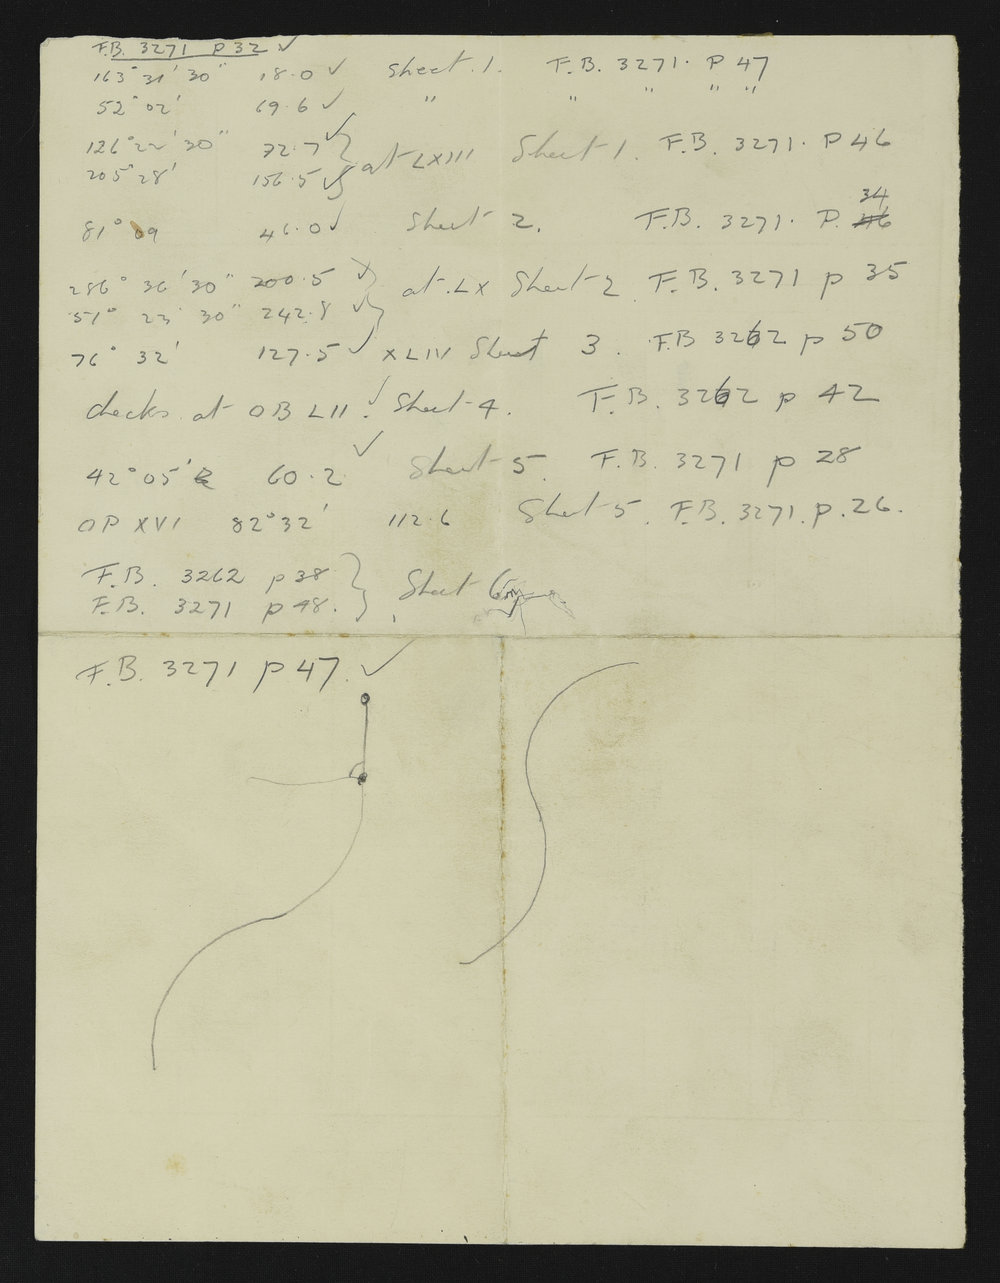 F.B. 3271 p 32 ✓
163° 31' 30" 18.0 ✓ Sheet. 1. F.B. 3271. P 47
52° 02' 69.6 ✓ " " " " "
126° 22' 30" 72.7 ✓ } at LXIII Sheet 1. F.B. 3271. P 46
205° 28' 156.5 ✓
81° 09 46.0 ✓ Sheet 2. F.B. 3271. P. 46 34
286° 36' 30" 200.5 ✓ } at LX Sheet 2 F.B. 3271 p 35
51° 23' 30" 242.8 ✓
76° 32' 127.5 ✓ XLIV Sheet 3. F.B 3262 p 50
checks at OB LII. ✓ Sheet 4. F.B. 3262 p 42
42° 05' 60.2 ✓ Sheet 5 F.B. 3271 p 28
OP XVI 82° 32' 112.6 Sheet 5. F.B. 3271. p. 26.
F.B. 3262 p 38 } Sheet 6
F.B. 3271 p 48.
F.B. 3271 p 47. ✓